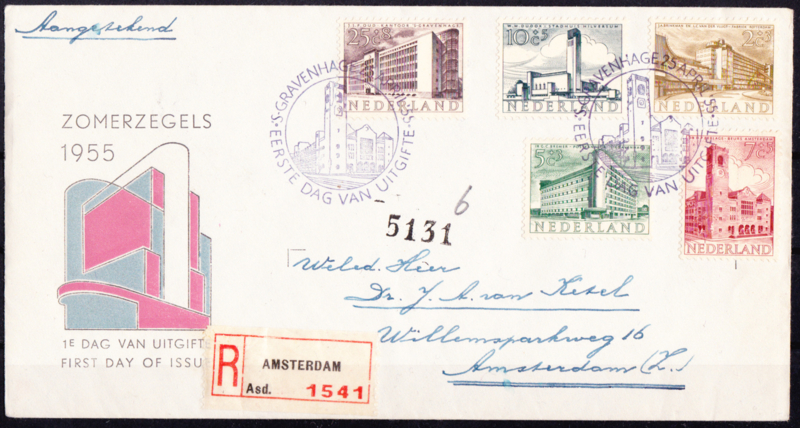 Aangetekend
ZOMERZEGELS
1955
1E DAG VAN UITGIFTE
FIRST DAY OF ISSUE
25+8
NEDERLAND
W.M. DUDOK STADHUIS HILVERSUM
10+5
NEDERLAND
2+3
NEDERLAND
5+3
NEDERLAND
BEURS AMSTERDAM
7+5
NEDERLAND
'S-GRAVENHAGE 25 APRIL 55
EERSTE DAG VAN UITGIFTE
'S-GRAVENHAGE 25 APRIL 55
EERSTE DAG VAN UITGIFTE
6
5131
Weled. Heer
Dr. J. A. van Ketel
Willemsparkweg 16
Amsterdam (Z.)
R
AMSTERDAM
Asd. 1541